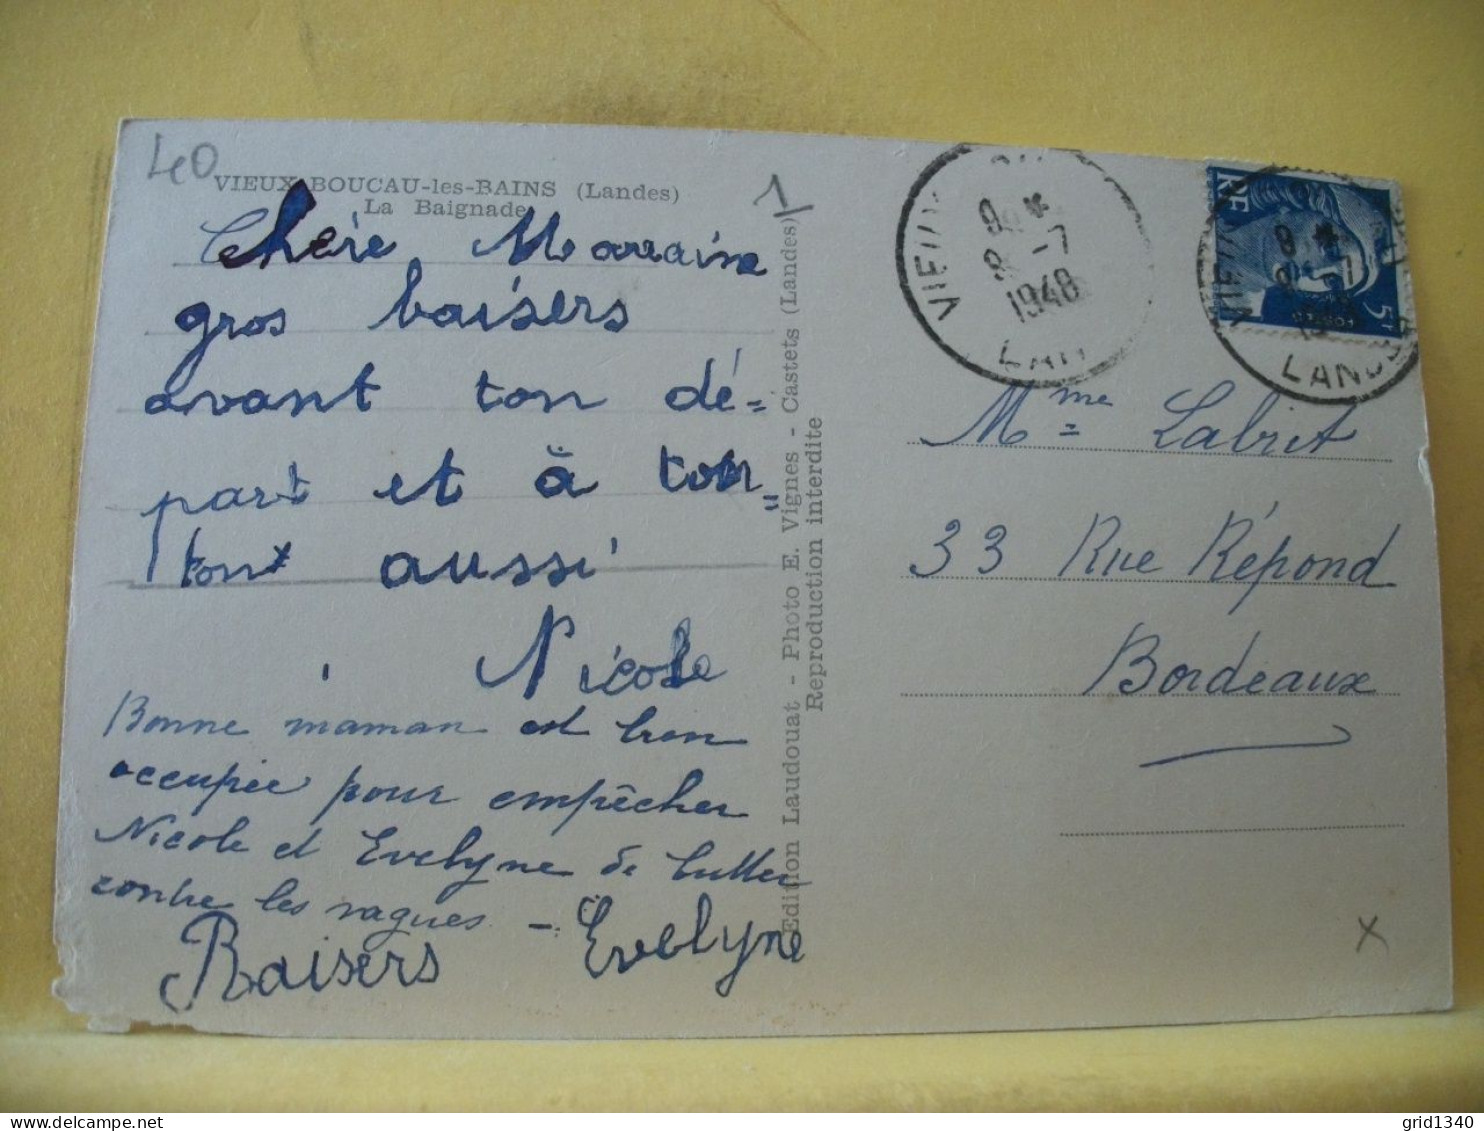 40
VIEUX-BOUCAU-les-BAINS (Landes)
La Baignade
1
Chère Marraine
gros baisers
avant ton dé=
part et à ton=
ton aussi
Nicole
Bonne maman est bien
occupée pour empêcher
Nicole et Evelyne de lutter
contre les vagues -
Baisers Evelyne
Edition Laudouat - Photo E. Vignes - Castets (Landes)
Reproduction interdite
VIEUX
9 *
8 -7
1948
LAN
RF
5F
POSTES
VIEUX
LANDES
Mme Labrit
33 Rue Répond
Bordeaux
x
grid1340